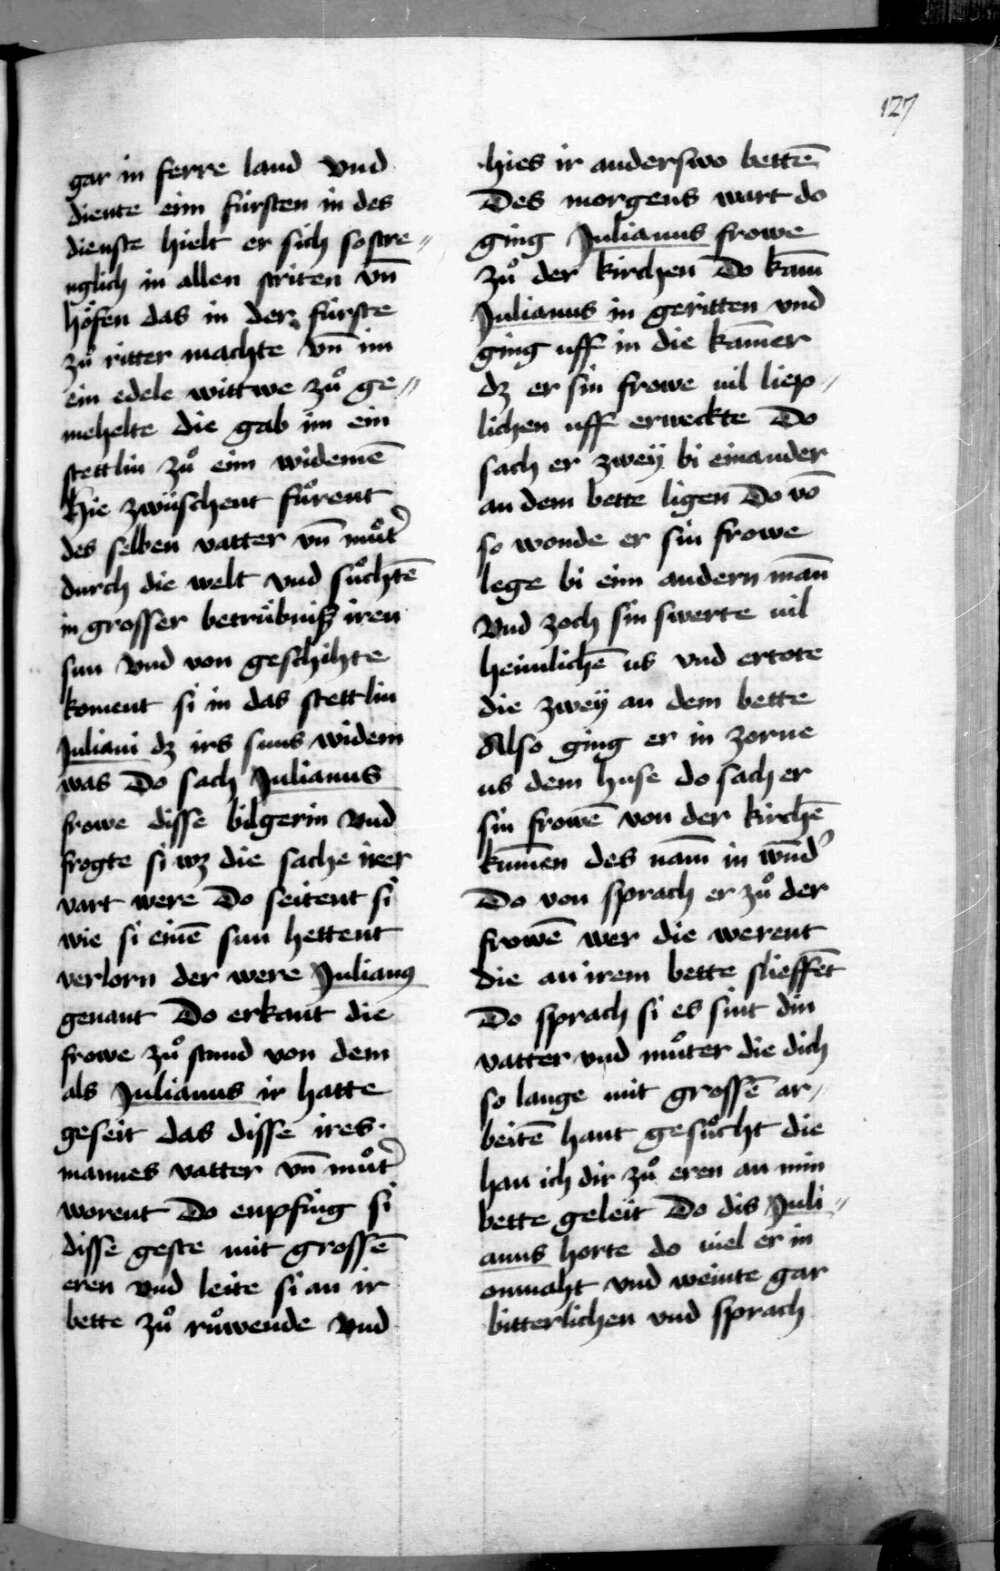 127
gar in ferre land vnd
diente eim fürsten in des
dienste hielt er sich so stre〃
nglich in allen striten vn̄
höfen das in der fürste
zuͦ ritter machte vn̄ im
ein edele wittwe zuͦ ge〃
mehelte die gab im ein
stettlin zuͦ eim widemē
Hie zwüschent fuͦrent
des selben vatter vn̄ muͦt͛
durch die welt vnd suͦchtē
in grosser betrübniß iren
sun vnd von geschihte
koment si in das stettlin
Juliani dz irs suns widem
was Do sach Julianus
frowe disse bilgerin vnd
frogte si wz die sache irer
vart were Do seitent si
wie si einē sun hettent
verlorn der were Julianꝰ
genant Do erkant die
frowe zuͦ stund von dem
als Julianus ir hatte
geseit das disse ires
mannes vatter vn̄ muͦt͛
worent Do enpfing si
disse geste mit grossē
eren vnd leite si an ir
bette zuͦ ruͦwende vnd
hies ir anderswo bettē
Des morgens wart do
ging Julianus frowe
zuͦ der kirchen Do kam̄
Julianus in geritten vnd
ging uff in die kam̄er
dz er sin frowe vil liep〃
lichen uff erweckte Do
sach er zwey bi einander
an dem bette ligen Do vō
so wonde er sin frowe
lege bi eim andern man̄
Vnd zoch sin swerte vil
heimlichē us vnd ertote
die zwey an dem bette
Also ging er in zorne
us dem huse do sach er
sin frowē von der kirchē
kum̄en des nam̄ in wūd͛
Do von sprach er zuͦ der
frowē wer die werent
die an irem bette slieffēt
Do sprach si es sint din
vatter vnd muͦter die dich
so lange mit grossē ar〃
beitē hant gesuͦcht die
han ich dir zuͦ eren an min
bette geleit Do dis Juli〃
anus horte do viel er in
onmaht vnd weinte gar
bitterlichen vnd sprach